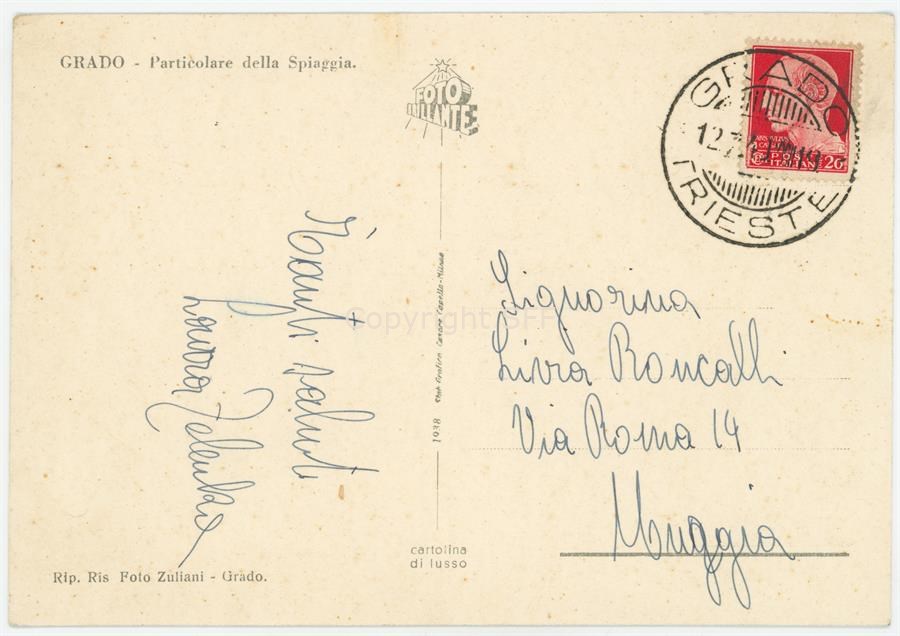 GRADO - Particolare della Spiaggia.
FOTO
BRILLANTE
GRADO
TRIESTE
POSTE
ITALIANE
20
Signorina
Livia Roncalli
Via Roma 14
Muggia
Tanti saluti
Laura
1938 Stab. Grafico Cesare Capello-Milano
cartolina
di lusso
Rip. Ris Foto Zuliani - Grado.
Copyright